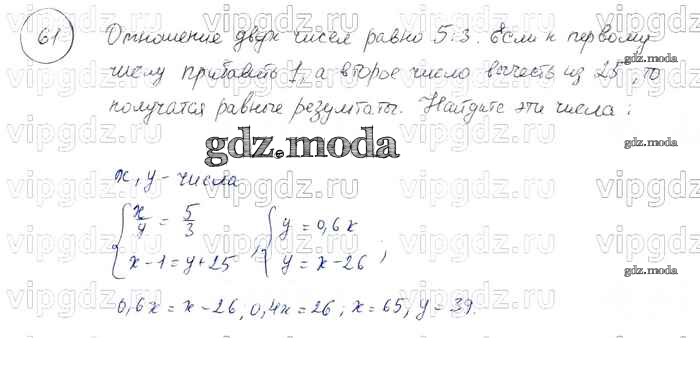 61. Отношение двух чисел равно 5:3. Если к первому
числу прибавить 1, а второе число вычесть из 25, то
получатся равные результаты. Найдите эти числа:
gdz.moda
x, y - числа
{ x/y = 5/3 { y = 0,6x
{ x-1 = y+25 , { y = x-26 ;
0,6x = x-26; 0,4x = 26; x = 65, y = 39.